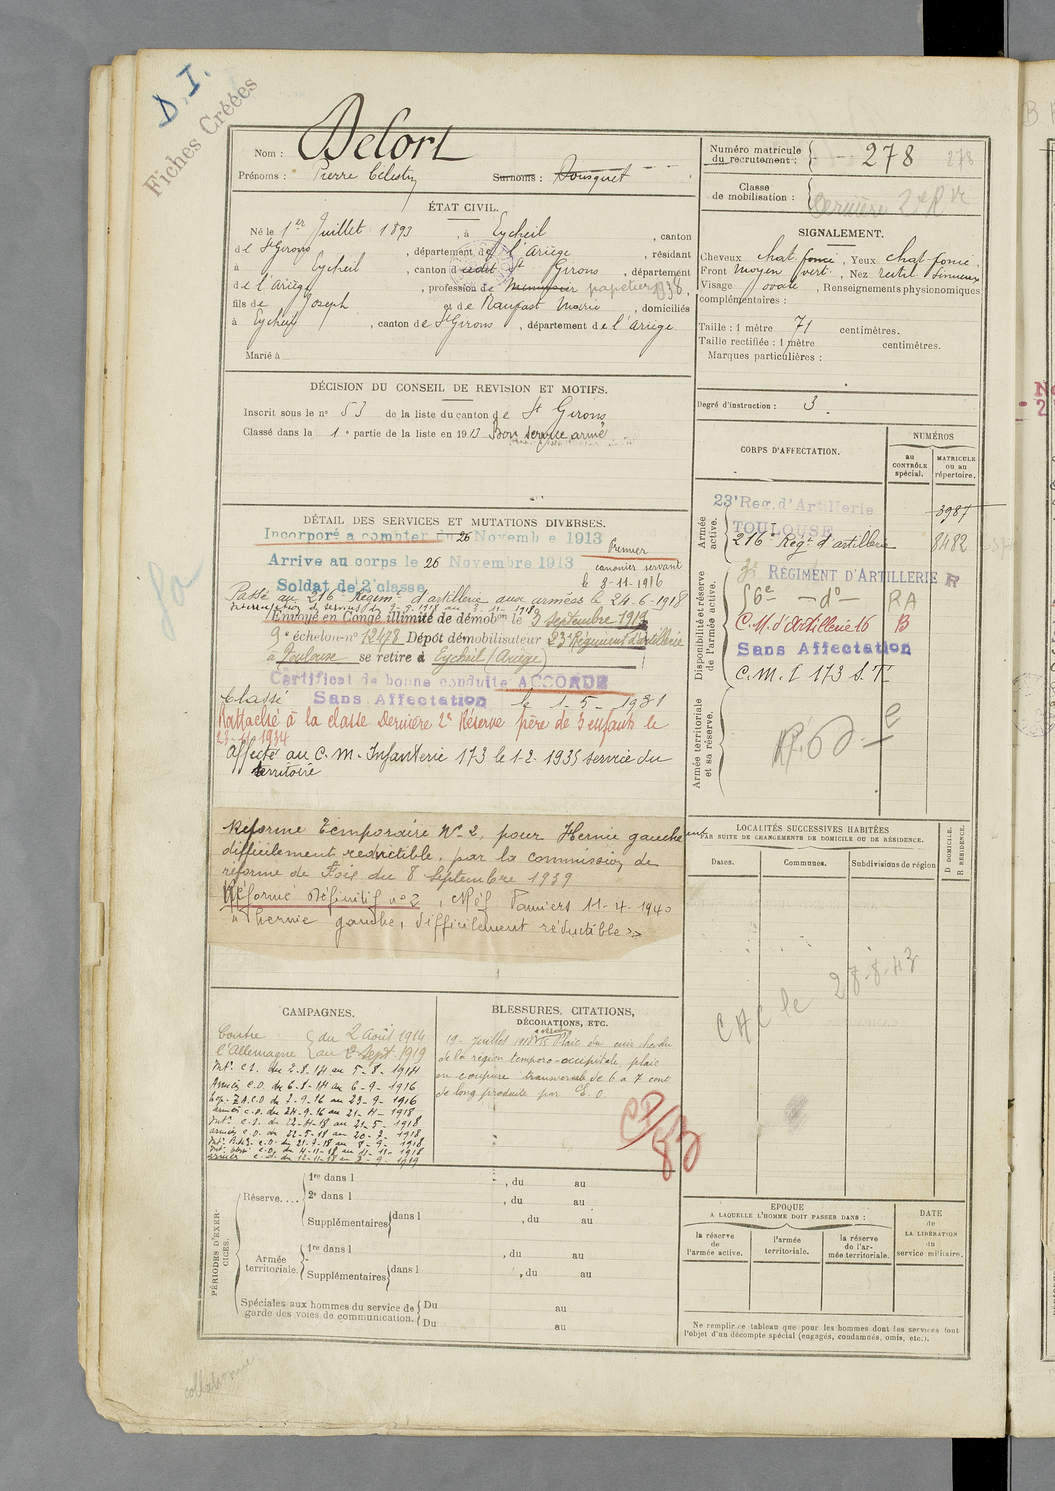 D.I.
Fiches Créées
Nom : Delort
Prénoms : Pierre Célestin Surnoms : Dousquet
Numéro matricule du recrutement : 278 278
Classe de mobilisation : Dernière 2e Rve
ÉTAT CIVIL.
Né le 1er Juillet 1893, à Eycheil, canton
de St Girons, département de l'Ariège, résidant
à Eycheil, canton dudit St Girons, département
de l'Ariège, profession de Menuisier papetier 1938,
fils de Joseph et de Raufast Marie, domiciliés
à Eycheil, canton de St Girons, département de l'Ariège
Marié à
SIGNALEMENT.
Cheveux chat. foncé, Yeux chat. foncé,
Front moyen vert., Nez rectil. sinueux
Visage ovale, Renseignements physionomiques
complémentaires :
Taille : 1 mètre 71 centimètres.
Taille rectifiée : 1 mètre centimètres.
Marques particulières :
Degré d'instruction : 3.
DÉCISION DU CONSEIL DE REVISION ET MOTIFS.
Inscrit sous le n° 53 de la liste du canton de St Girons
Classé dans la 1e partie de la liste en 1913 Bon service armé
DÉTAIL DES SERVICES ET MUTATIONS DIVERSES.
Incorporé à compter du 26 Novembre 1913
Arrive au corps le 26 Novembre 1913
Soldat de 2e classe
Premier
canonier servant
le 3-11-1916
Passé au 216e Régimt d'artillerie aux armées le 24-6-1918
Interruption de services du
Envoyé en Congé illimité de démobon le 3 septembre 1919
9e échelon n° 12478 Dépôt démobilisateur 23e Régiment d'artillerie
à Toulouse se retire à Eycheil (Ariège)
Certificat de bonne conduite ACCORDÉ
Classé Sans Affectation le 1-5-1931
Rattaché à la classe Dernière 2e Réserve père de 3 enfants le
1934
Affecté au C.M. Infanterie 173 le 1-2-1935 service du
territoire
Réforme Temporaire N° 2, pour Hernie gauche
difficilement reductible, par la commission de
réforme de Foix du 8 Septembre 1939
Réformé Définitif n° 2, Réf Pamiers 11-4-1940
"Hernie gauche, difficilement réductible"
CORPS D'AFFECTATION.
NUMÉROS
au CONTRÔLE spécial.
MATRICULE ou au répertoire.
Armée active.
23e Reg. d'Artillerie
TOULOUSE
3987
216e Regt d'artillerie 8482
Disponibilité et réserve de l'armée active.
3e RÉGIMENT D'ARTILLERIE R
56e — do — RA
C.M. d'Artillerie 16 B
Sans Affectation
C.M. I 173 S.T.
Armée territoriale et sa réserve.
LOCALITÉS SUCCESSIVES HABITÉES
PAR SUITE DE CHANGEMENTS DE DOMICILE OU DE RÉSIDENCE.
Dates. Communes. Subdivisions de région
D DOMICILE. R RÉSIDENCE.
CAC le 28-8-42
CAMPAGNES.
Contre l'Allemagne
du 2 août 1914
au 2 Sept. 1919
Intr C.S. du 2.8.14 au 5-8-1914
Armées C.D. du 6-8-14 au 6-9-1916
armées C.D. du 24-9-16 au 21-11-1918
BLESSURES, CITATIONS, DÉCORATIONS, ETC.
19 juillet 1918 Plaie du cuir chevelu
de la région temporo-occipitale, plaie
en coupure transversale de 6 à 7 cent
de long produite par E.O.
CP/83
PÉRIODES D'EXERCICES.
Réserve....
1re dans l , du au
2e dans l , du au
Supplémentaires dans l , du au
Armée territoriale.
1re dans l , du au
Supplémentaires dans l , du au
Spéciales aux hommes du service de garde des voies de communication.
Du au
Du au
EPOQUE
A LAQUELLE L'HOMME DOIT PASSER DANS :
la réserve de l'armée active.
l'armée territoriale.
la réserve de l'armée territoriale.
DATE de LA LIBÉRATION du service militaire.
Ne remplir ce tableau que pour les hommes dont les services font
l'objet d'un décompte spécial (engagés, condamnés, omis, etc.).